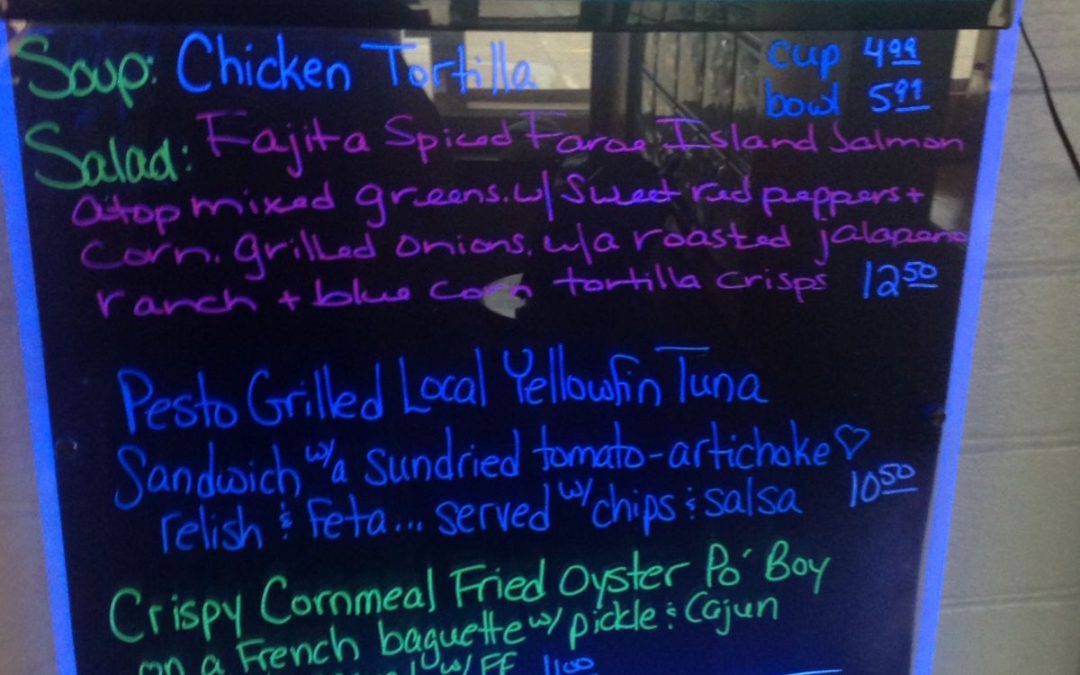 Soup: Chicken Tortilla cup 4.99
bowl 5.99
Salad: Fajita Spiced Faroe Island Salmon
atop mixed greens. w/ sweet red peppers +
corn. grilled onions. w/a roasted jalapeno
ranch + blue corn tortilla crisps 12.50
Pesto Grilled Local Yellowfin Tuna
Sandwich w/a sundried tomato-artichoke ♡
relish & Feta... served w/ chips & salsa 10.50
Crispy Cornmeal Fried Oyster Po' Boy
on a French baguette w/ pickle & Cajun
w/ FF 11.00